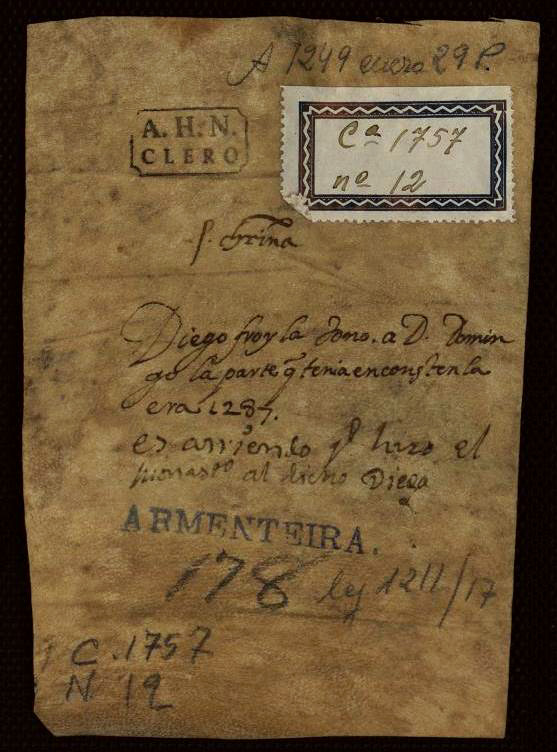 A 1249 enero 29 P.
A. H. N.
CLERO
Cª 1757
nº 12
Diego froyla dono. a D. Domin
go la parte q tenia en
era 1287.
es arriendo q hizo el
monastº al dicho Diego
ARMENTEIRA.
178 leg 1211/17
C. 1757
N 12